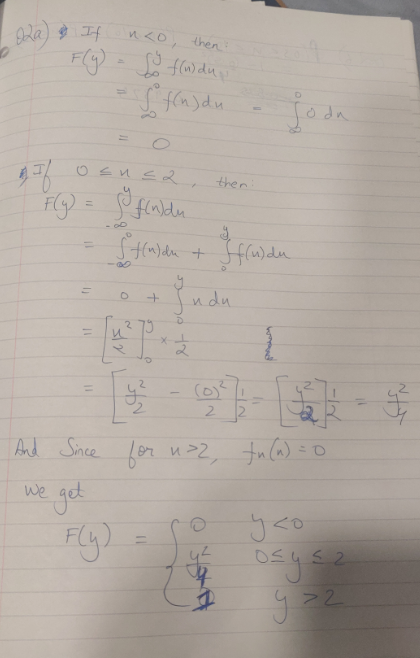 Q2a) If x<0, then:
F(y) = ∫_∞^y f(x)dx
= ∫_∞^0 f(x)dx = ∫_∞^0 0 dx
= 0
If 0 ≤ x ≤ 2, then:
F(y) = ∫_-∞^y f(x)dx
= ∫_-∞^0 f(x)dx + ∫_0^y f(x)dx
= 0 + ∫_0^y x dx
= [x²/2]_0^y × 1/2
= [y²/2 - (0)²/2] 1/2 = [y²/2] 1/2 = y²/4
And Since for x>2, fx(x) = 0
We get
F(y) = { 0 y<0
y²/4 0≤y≤2
1 y>2